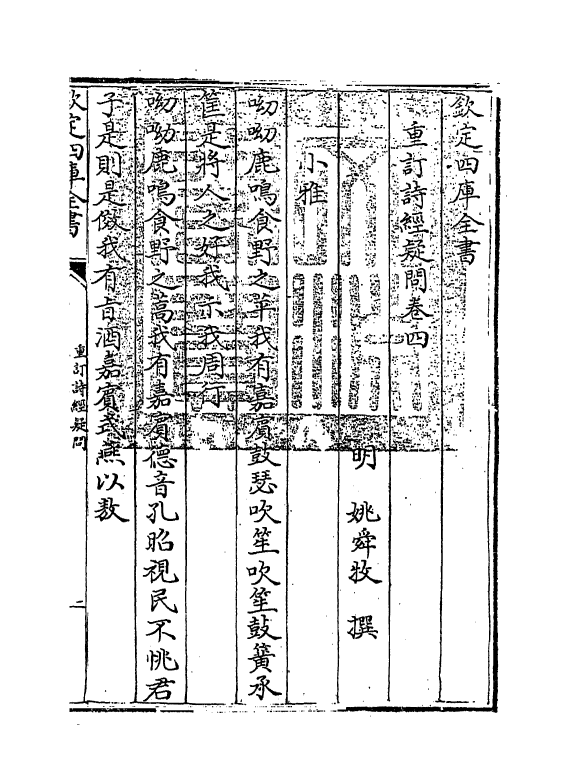 欽定四庫全書
重訂詩經疑問卷四
明 姚舜牧 撰
小雅
呦呦鹿鳴食野之苹我有嘉賓鼓瑟吹笙吹笙鼓簧承
筐是將人之好我示我周行
呦呦鹿鳴食野之蒿我有嘉賓德音孔昭視民不恌君
子是則是傚我有旨酒嘉賓式燕以敖
欽定四庫全書
重訂詩經疑問